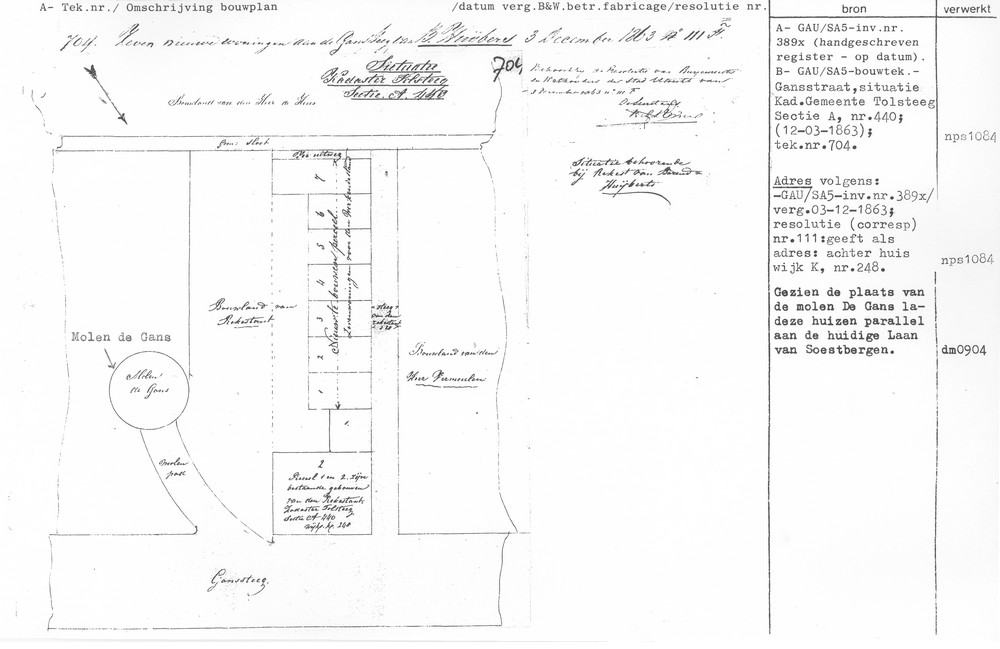 A- Tek.nr./ Omschrijving bouwplan
/datum verg.B&W.betr.fabricage/resolutie nr.
bron
verwerkt
704. Zeven nieuwe woningen aan de Gans steeg van B Huijberts 3 December 1863 No 111 F
704
Situatie
Kadaster Tolsteeg
Sectie A. 440
Bouwland van den Heer de
Behoort bij Resolutie van Burgemeester
en Wethouders der Stad Utrecht van
3 December 1863 no 111 F
De Secretaris
Situatie behoorende
bij Rekest van Barend
Huijberts
Sloot
7
6
5
4
3
2
1
Nieuwe bouwen perceel
Bouwland van
Rekestrant
Steeg
van den
Bouwland van den
Heer Vermeulen
Molen de Gans
Molen
de Gans
molen
pad
1.
2
Perceel 1 en 2. zijn
bestaande gebouwen
van den Rekestrant
Kadaster Tolsteeg
Sectie A 440
Wijk K. 248
Ganssteeg.
A- GAU/SA5-inv.nr.
389x (handgeschreven
register - op datum).
B- GAU/SA5-bouwtek.-
Gansstraat,situatie
Kad.Gemeente Tolsteeg
Sectie A, nr.440;
(12-03-1863);
tek.nr.704.
nps1084
Adres volgens:
-GAU/SA5-inv.nr.389x/
verg.03-12-1863;
resolutie (corresp)
nr.111:geeft als
adres: achter huis
wijk K, nr.248.
nps1084
Gezien de plaats van
de molen De Gans la-
deze huizen parallel
aan de huidige Laan
van Soestbergen.
dm0904